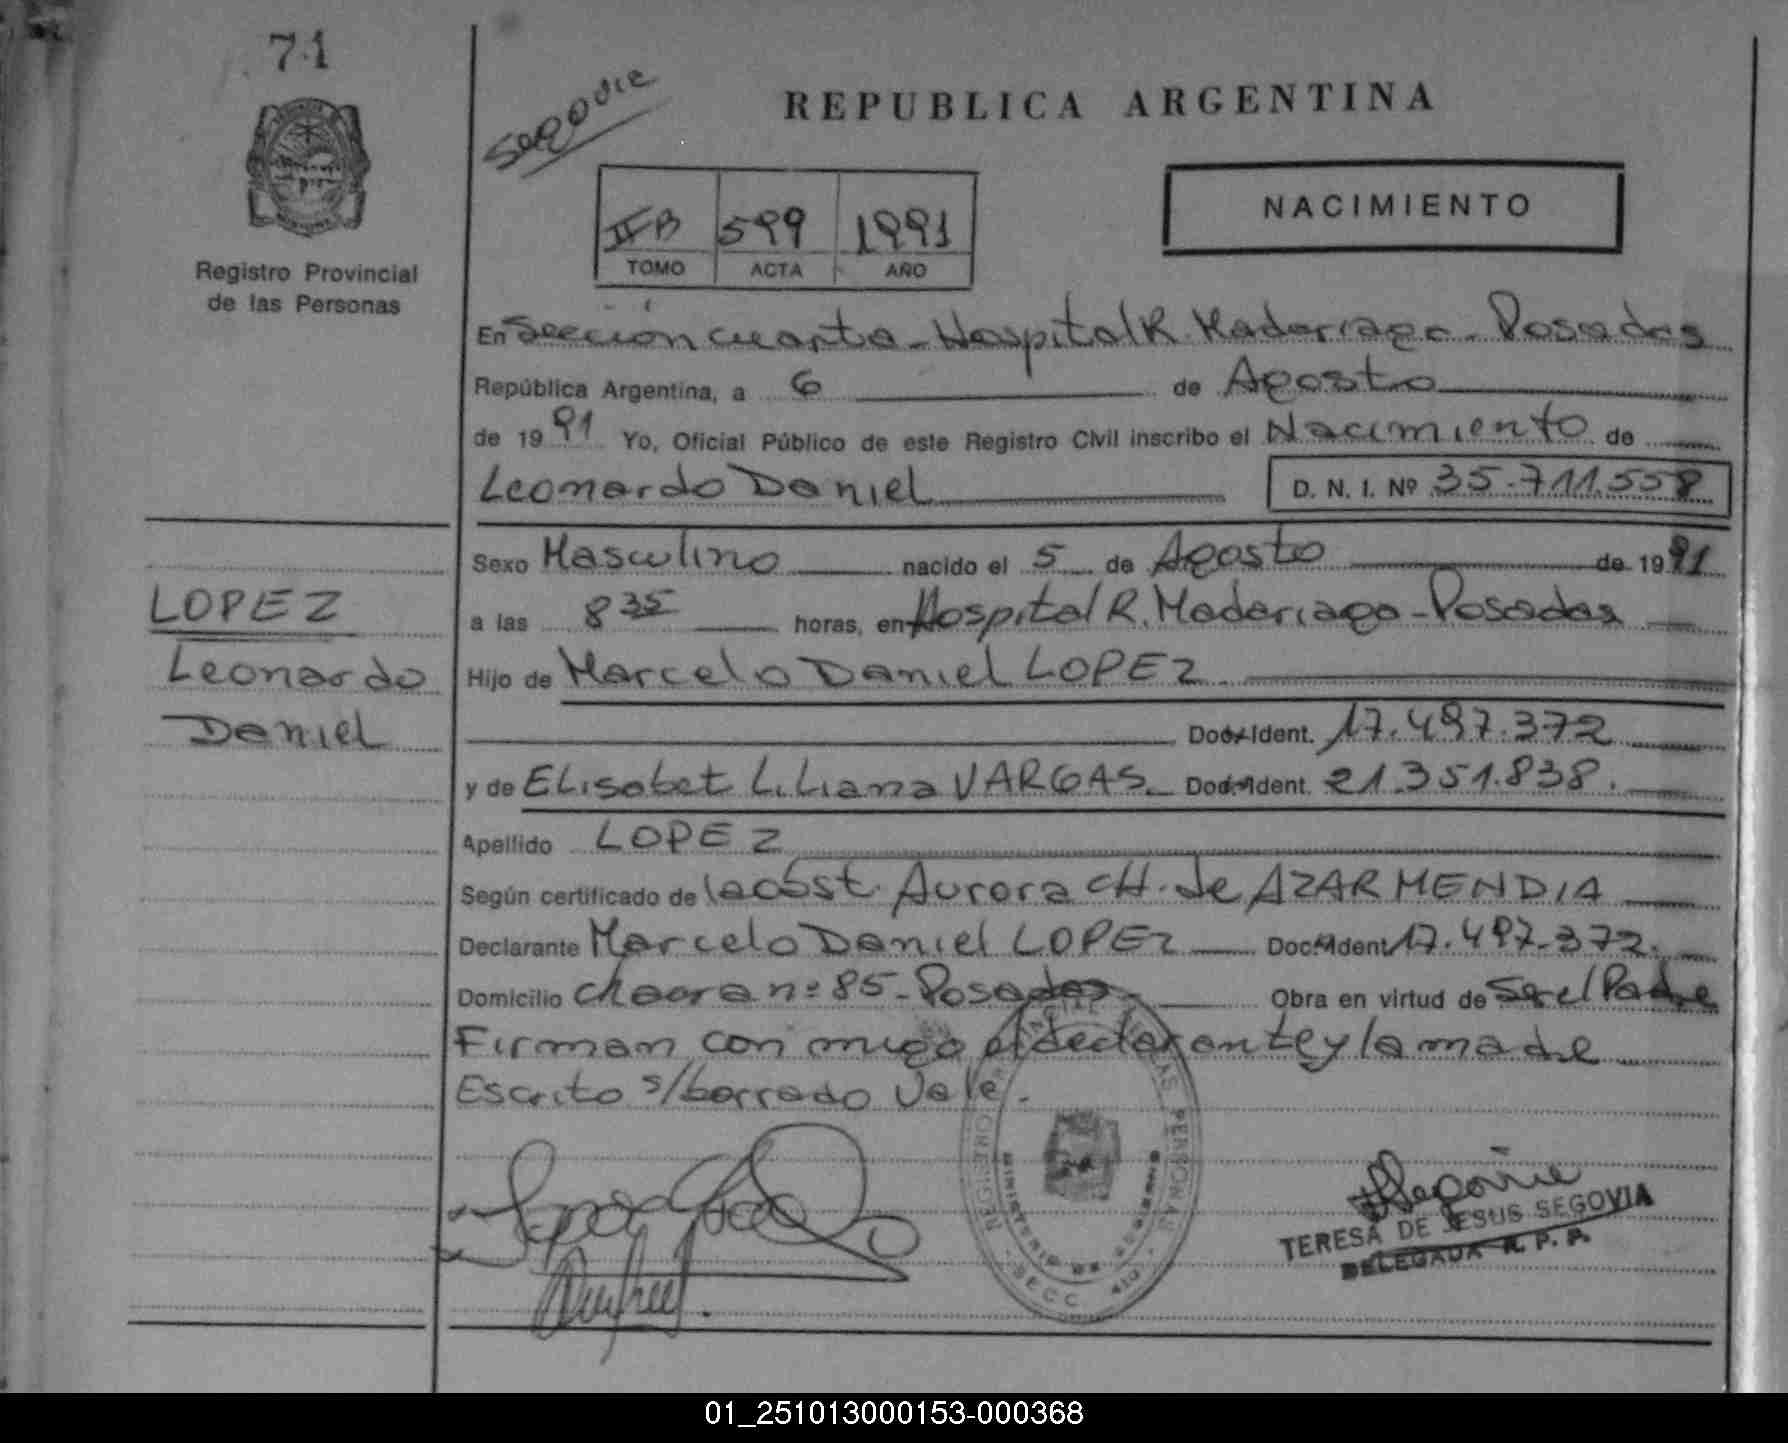 71
Registro Provincial
de las Personas
Segovia
REPUBLICA ARGENTINA
IIB 599 1991
TOMO ACTA AÑO
NACIMIENTO
En Sección cuarta - Hospital R. Madariaga - Posadas
República Argentina, a 6 de Agosto
de 1991 Yo, Oficial Público de este Registro Civil inscribo el Nacimiento de
Leonardo Daniel D. N. I. Nº 35.711.558
Sexo Masculino nacido el 5 de Agosto de 1991
a las 8 35 horas, en Hospital R. Madariaga - Posadas
Hijo de Marcelo Daniel LOPEZ
Doc. Ident. 17.497.372
y de Elisabet Liliana VARGAS Doc. Ident. 21.351.838.
Apellido LOPEZ
Según certificado de la obst. Aurora CH. de AZARMENDIA
Declarante Marcelo Daniel LOPEZ Doc. Ident. 17.497.372.
Domicilio chacra nº 85 - Posadas - Obra en virtud de Ser el Padre
Firman con migo el declarante y la madre
Escrito s/borrado Vale.
LOPEZ
Leonardo
Daniel
REGISTRO PROVINCIAL DE LAS PERSONAS
MINISTERIO DE GOBIERNO
SECC. 4ta
Segovia
TERESA DE JESUS SEGOVIA
DELEGADA R. P. P.
01_251013000153-000368